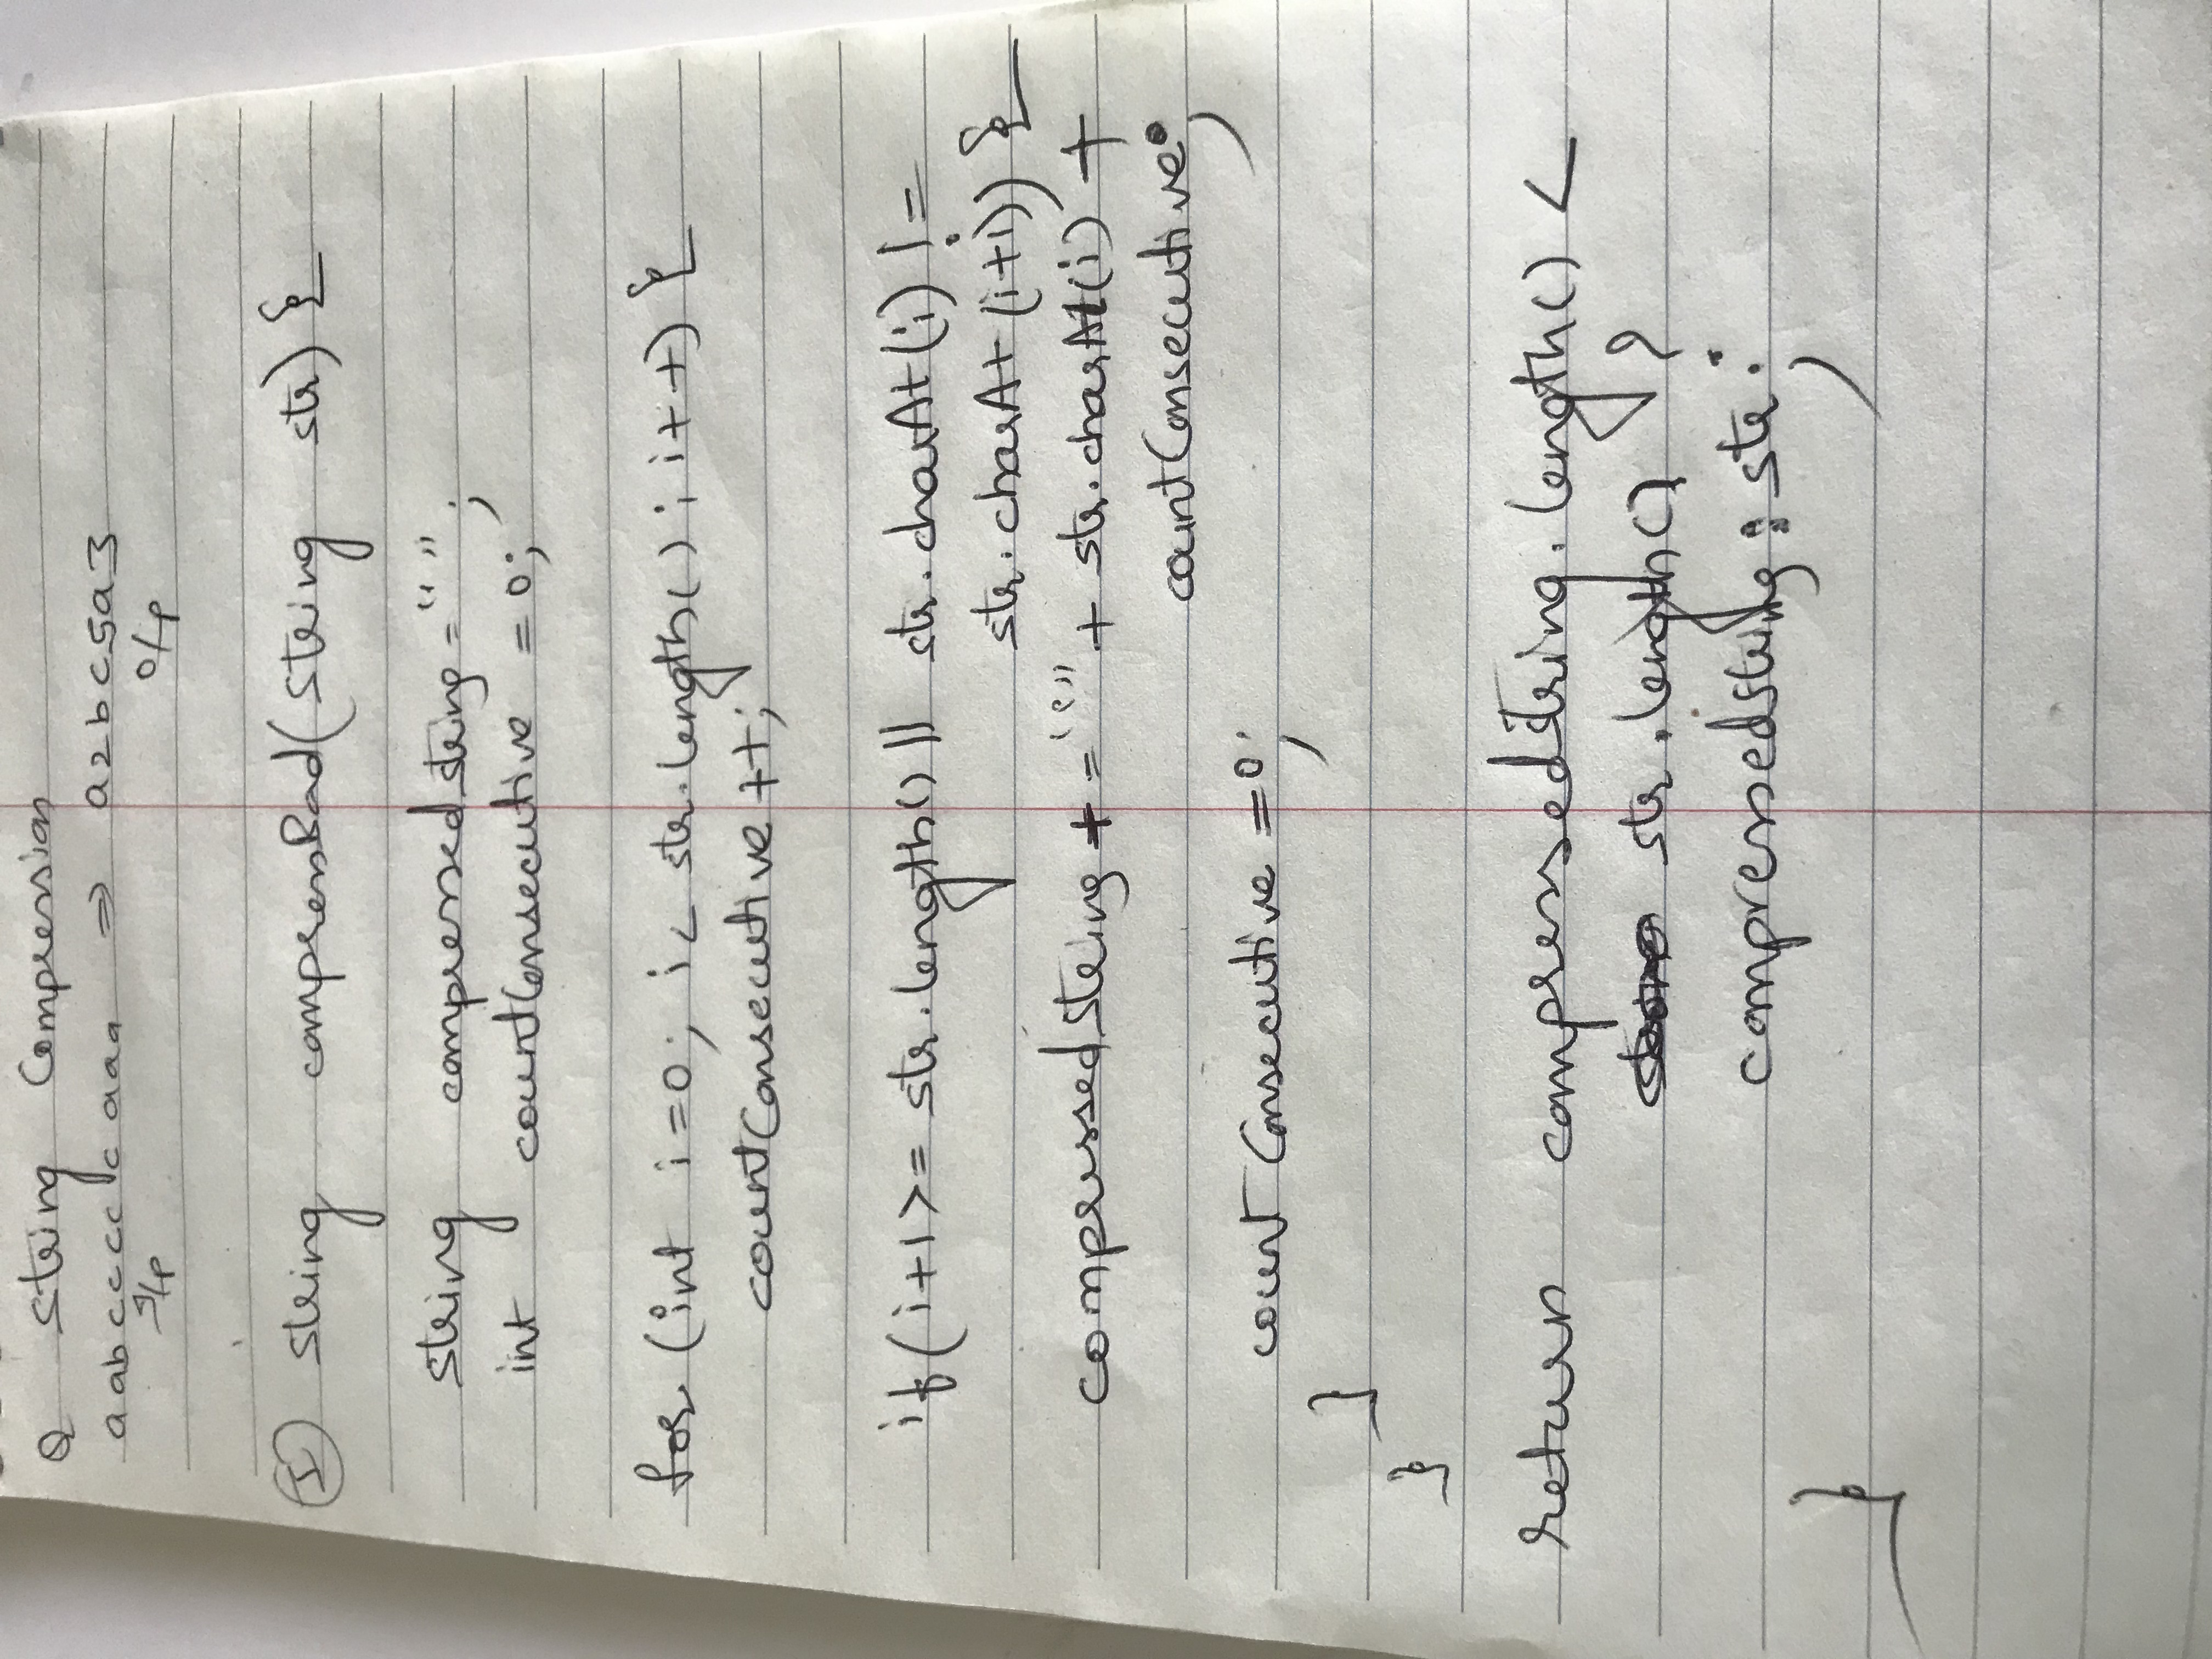 Q String Compression
aabccccc aaa ⇒ a2bc5a3
I/p O/p
I string compressBad(String str) {
string compressedstring = "";
int countConsecutive = 0;
for (int i=0; i< str.length(); i++) {
countConsecutive ++;
if (i+1>= str.length() || str.charAt(i) !=
str.charAt(i+1)) {
compressedString += "" + str.charAt(i) +
countConsecutive;
count Consecutive = 0;
}
}
return compressedString.length() <
str.length() ?
compressedstring : str;
}